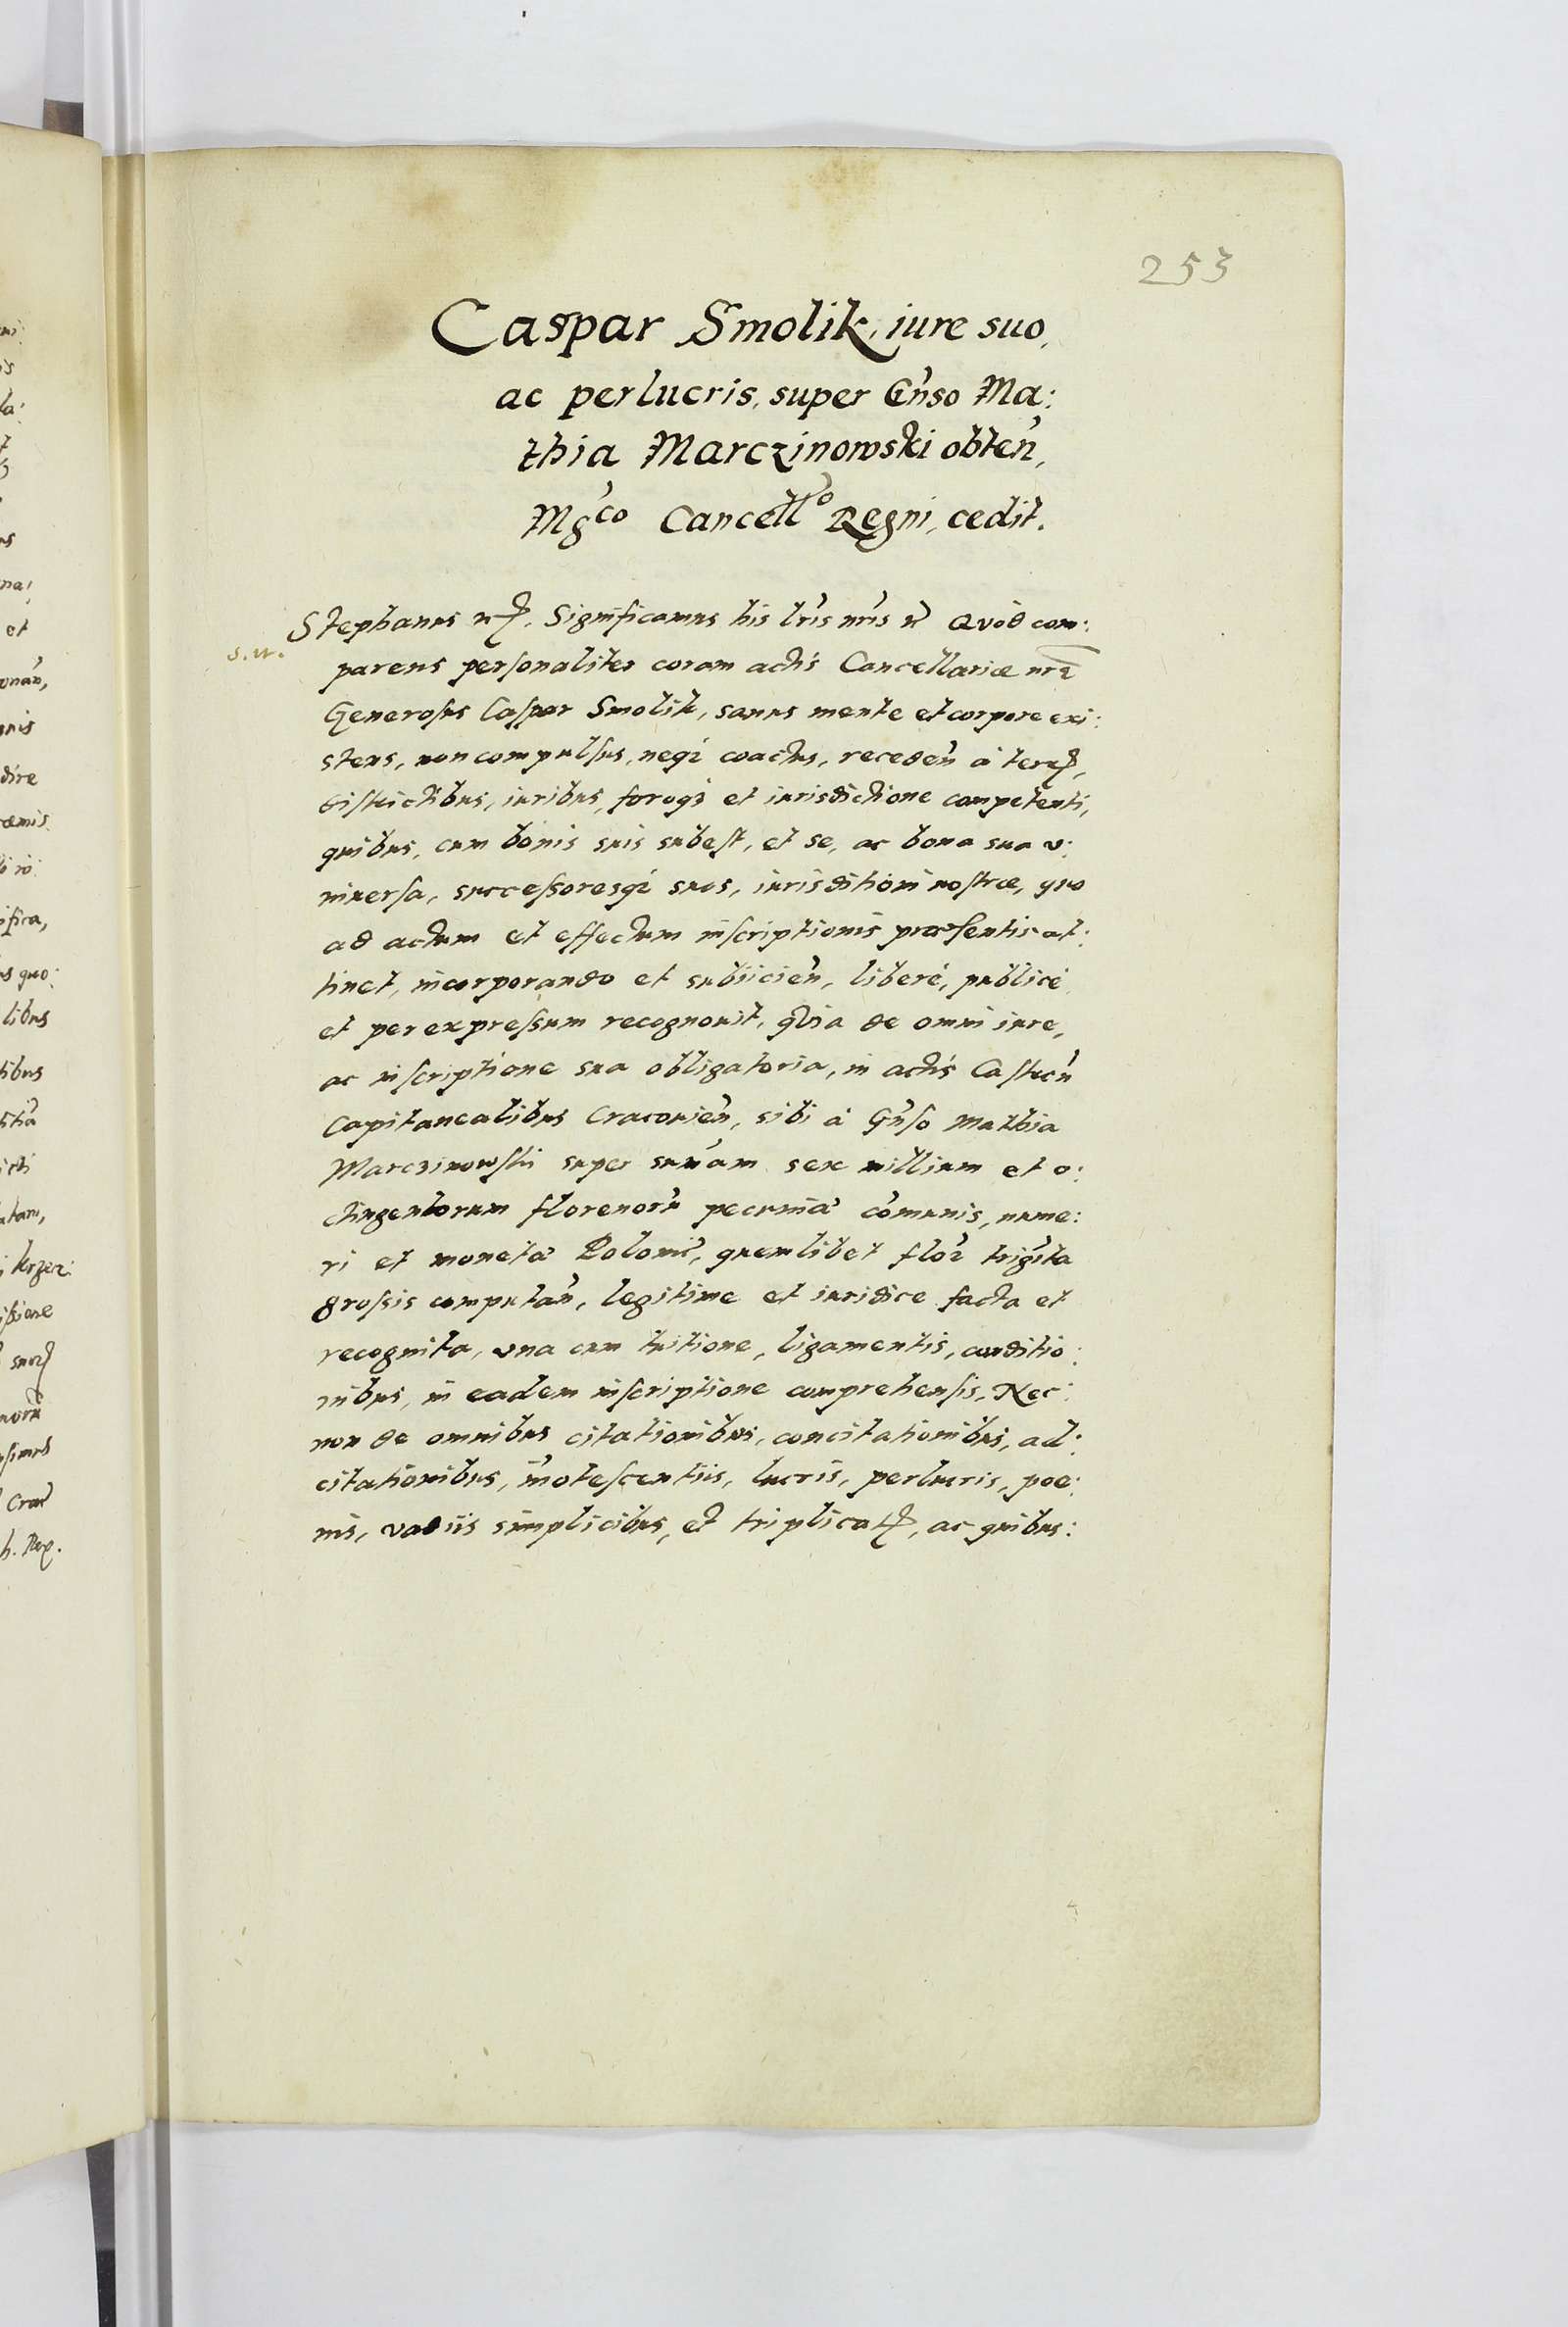 253
Caspar Smolik, iure suo,
ac perlucris, super Gn̉so Ma:
thia Marczinowski obten̉,
Mg̉co Cancell̉o Regni, cedit.
Stephanus Significamus his lr̉is nr̉is Quod com:
s.n.
parens personaliter coram actis Cancellariæ nræ
Generosus Caspar Smolik, sanus mente et corpore exi:
stens, non compulsus, neq3 coactus, receden̉ à
districtibus, iuribus, foroq3 et iurisdictione competenti,
quibus, cum bonis suis subest, et se, ac bona sua v:
niuersa, successoresq3 suos, iurisditioni nostræ, quo
ad actum et effectum inscriptionis præsentis at:
tinet, incorporando et subiicien̉, liberè, publicè
et per expressum recognouit, quia de omni iure,
ac inscriptione sua obligatoria, in actis Castren̉
Capitanealibus Cracouien̉, sibi à Gn̉so Mathia
Marczinowski super sum̉am sex millium et o:
ctingentorum florenorũ pecuniæ com̉unis, nume:
ri et monetæ Polonic̉, quemlibet flo2̉ trigita
grossis computan̉, legitime et iuridice facta et
recognita, vna cum tuitione, ligamentis, conditio:
nibus, in eadem inscriptione comprehensis, Nec:
non de omnibus citationibus, concitationibus, ad:
citationibus, in̉otescentiis, lucris, perlucris, poe:
nis, vadiis simplicibus, et triplicat, ac quibus: